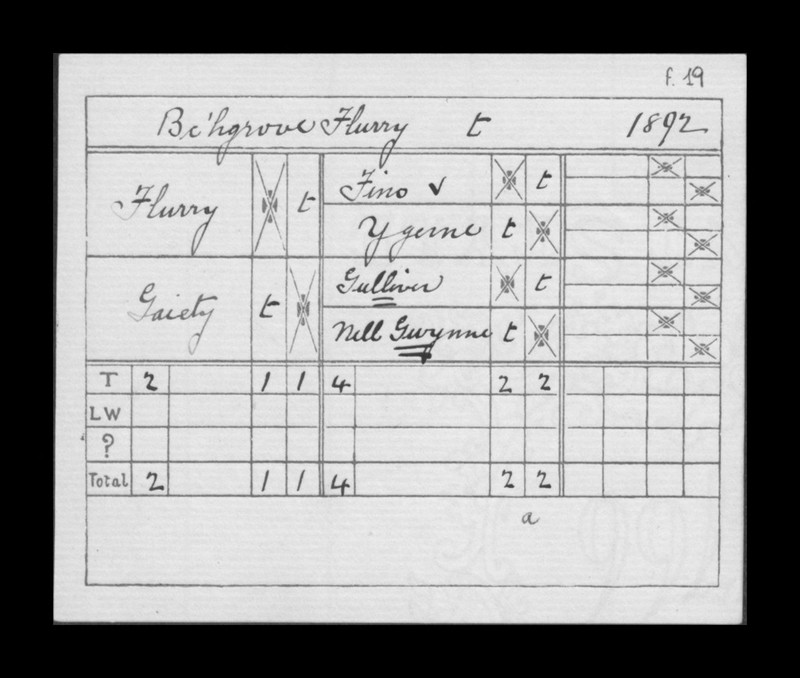 f. 19
Bc'hgrove Flurry t 1892
Fino ✓ t
Flurry t
Ygerne t
Gulliver t
Gaiety t
Nell Gwynne t
T 2 1 1 4 2 2
LW
?
Total 2 1 1 4 2 2
a